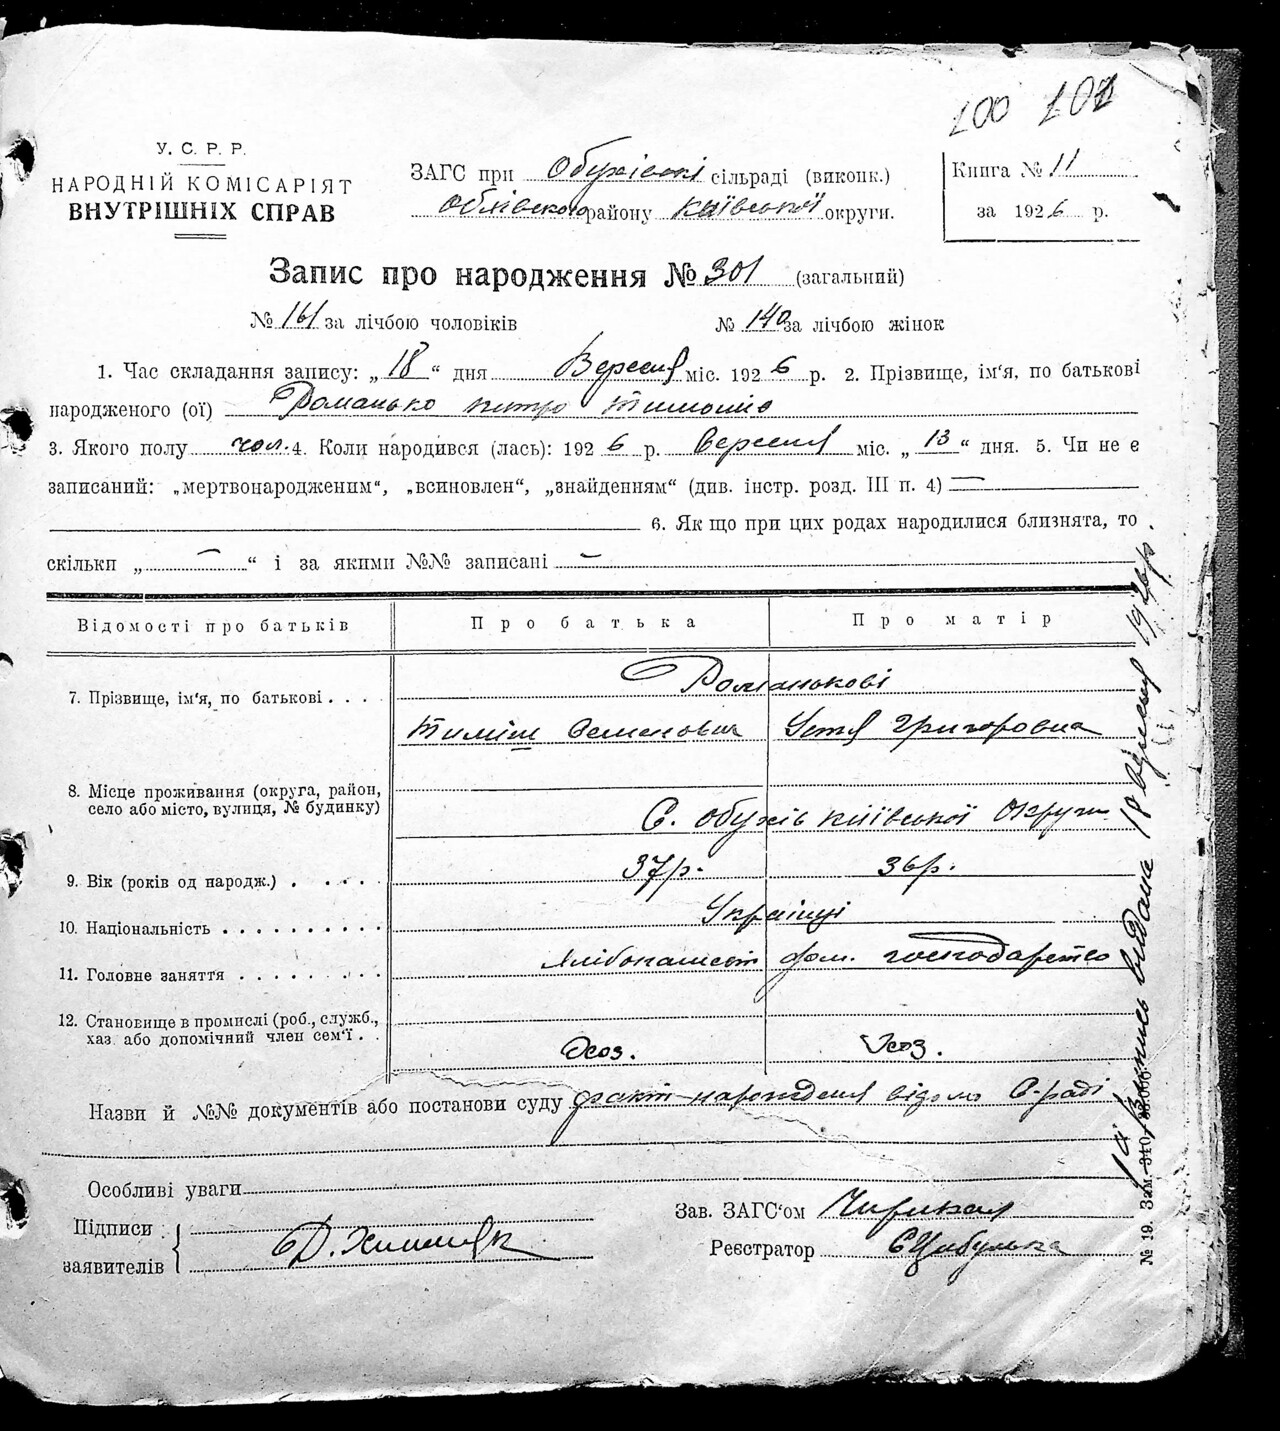 100 101
У. С. Р. Р.
НАРОДНІЙ КОМІСАРІЯТ
ВНУТРІШНІХ СПРАВ
ЗАГС при Обухівскі сільраді (виконк.)
району Київської округи.
Книга № 11
за 1926 р.
Запис про народження № 301 (загальний)
№ 161 за лічбою чоловіків № 140 за лічбою жінок
1. Час складання запису: „18“ дня Вересня міс. 1926 р. 2. Прізвище, ім‘я, по батькові
народженого (ої) Романько Тимошів
3. Якого полу чол. 4. Коли народився (лась): 1926 р. вересня міс. „13“ дня. 5. Чи не є
записаний: „мертвонародженим“, „всиновлен“, „знайденням“ (див. інстр. розд. III п. 4) —
6. Як що при цих родах народилися близнята, то
скільки „—“ і за якими №№ записані —
Відомості про батьків Про батька Про матір
Романькові
7. Прізвище, ім‘я, по батькові . . . .
Тиміш Семенович Устя Григоровна
8. Місце проживання (округа, район,
село або місто, вулиця, № будинку)
С. Обухів Київської Округи
9. Вік (років од народж.) . . . . . 37р. 36р.
10. Національність . . . . . . . . . . Українці
11. Головне заняття . . . . . . . . . Хлібопашест дом. господарство
12. Становище в промислі (роб., служб.,
хаз. або допомічний член сем‘ї . .
Хоз. Хоз.
Назви й №№ документів або постанови суду факт народження відомо С-раді
Особливі уваги
Підписи
заявителів
Зав. ЗАГС‘ом
Реєстратор Є Цибулька
видана 18 вересня 1926р.
№ 19. Зам.